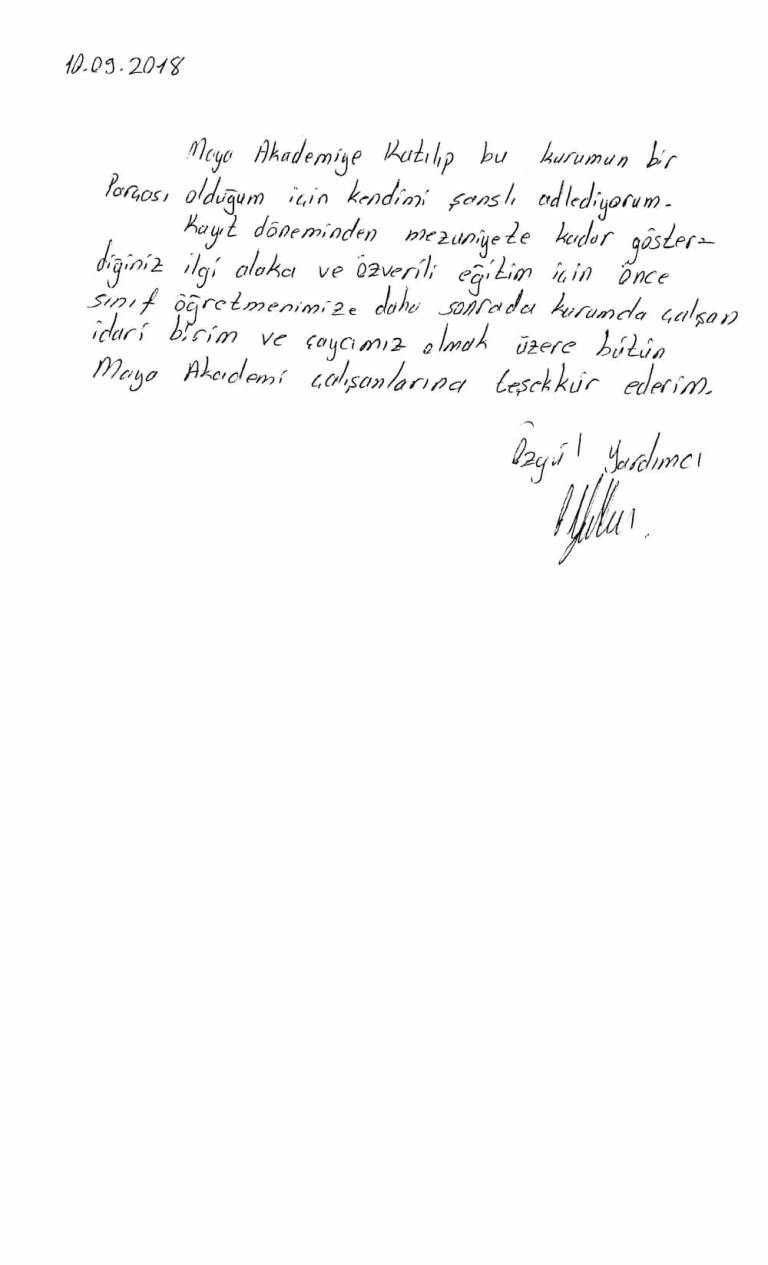 10.09.2018
Maya Akademiye Katılıp bu kurumun bir
Parçası olduğum için kendimi şanslı adlediyorum.
Kayıt döneminden mezuniyete kadar göster-
diğiniz ilgi alaka ve özverili eğitim için önce
sınıf öğretmenimize daha sonrada kurumda çalışan
idari birim ve çaycımız olmak üzere bütün
Maya Akademi çalışanlarına teşekkür ederim.
Özgül Yardımcı